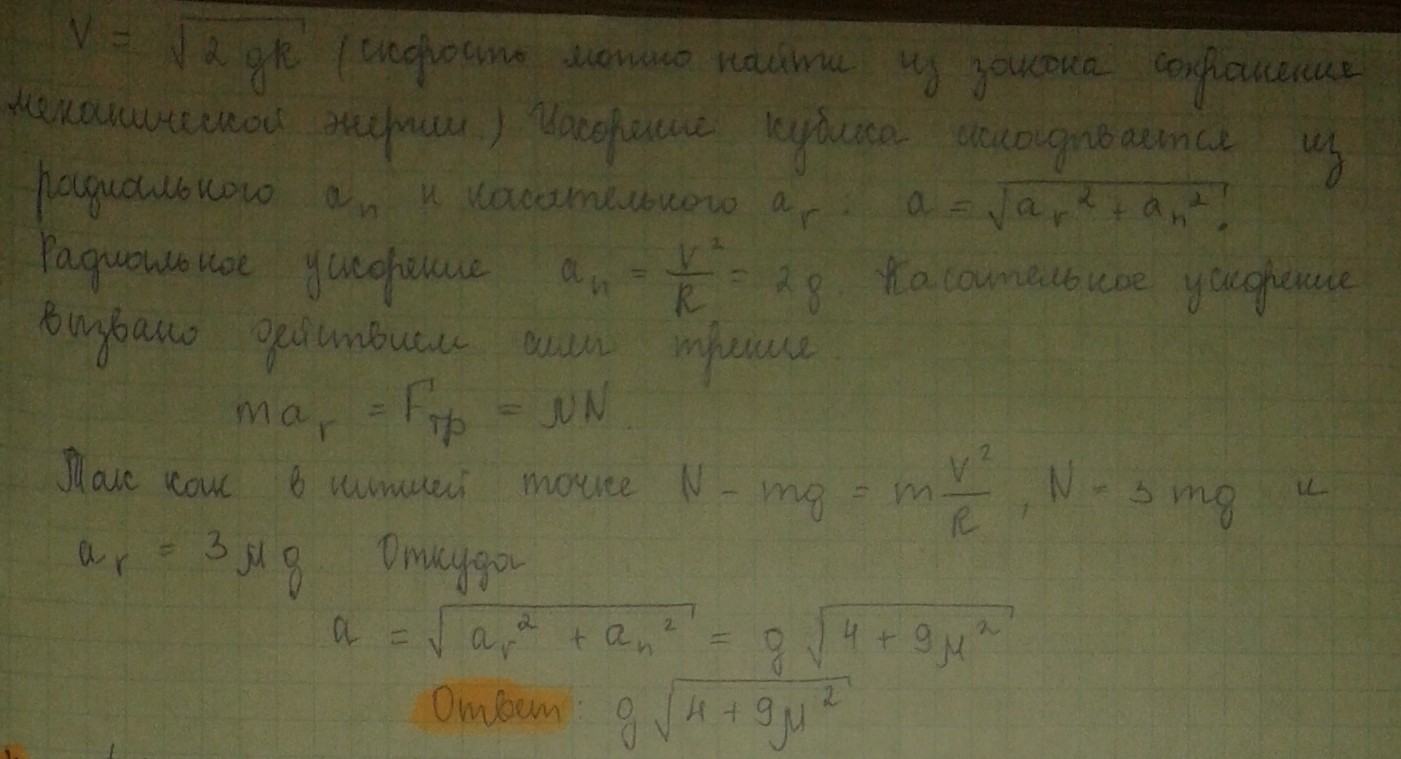 V = √2gR (скорость можно найти из закона сохранения
механической энергии.) Ускорение кубика складывается из
радиального aₙ и касательного aᵣ. a = √aᵣ² + aₙ².
Радиальное ускорение aₙ = V²/R = 2g. Касательное ускорение
вызвано действием силы трения.
maᵣ = Fтр = μN.
Так как в нижней точке N - mg = m V²/R, N = 3mg и
aᵣ = 3μg Откуда
a = √aᵣ² + aₙ² = g√4 + 9μ²
Ответ: g√4 + 9μ²